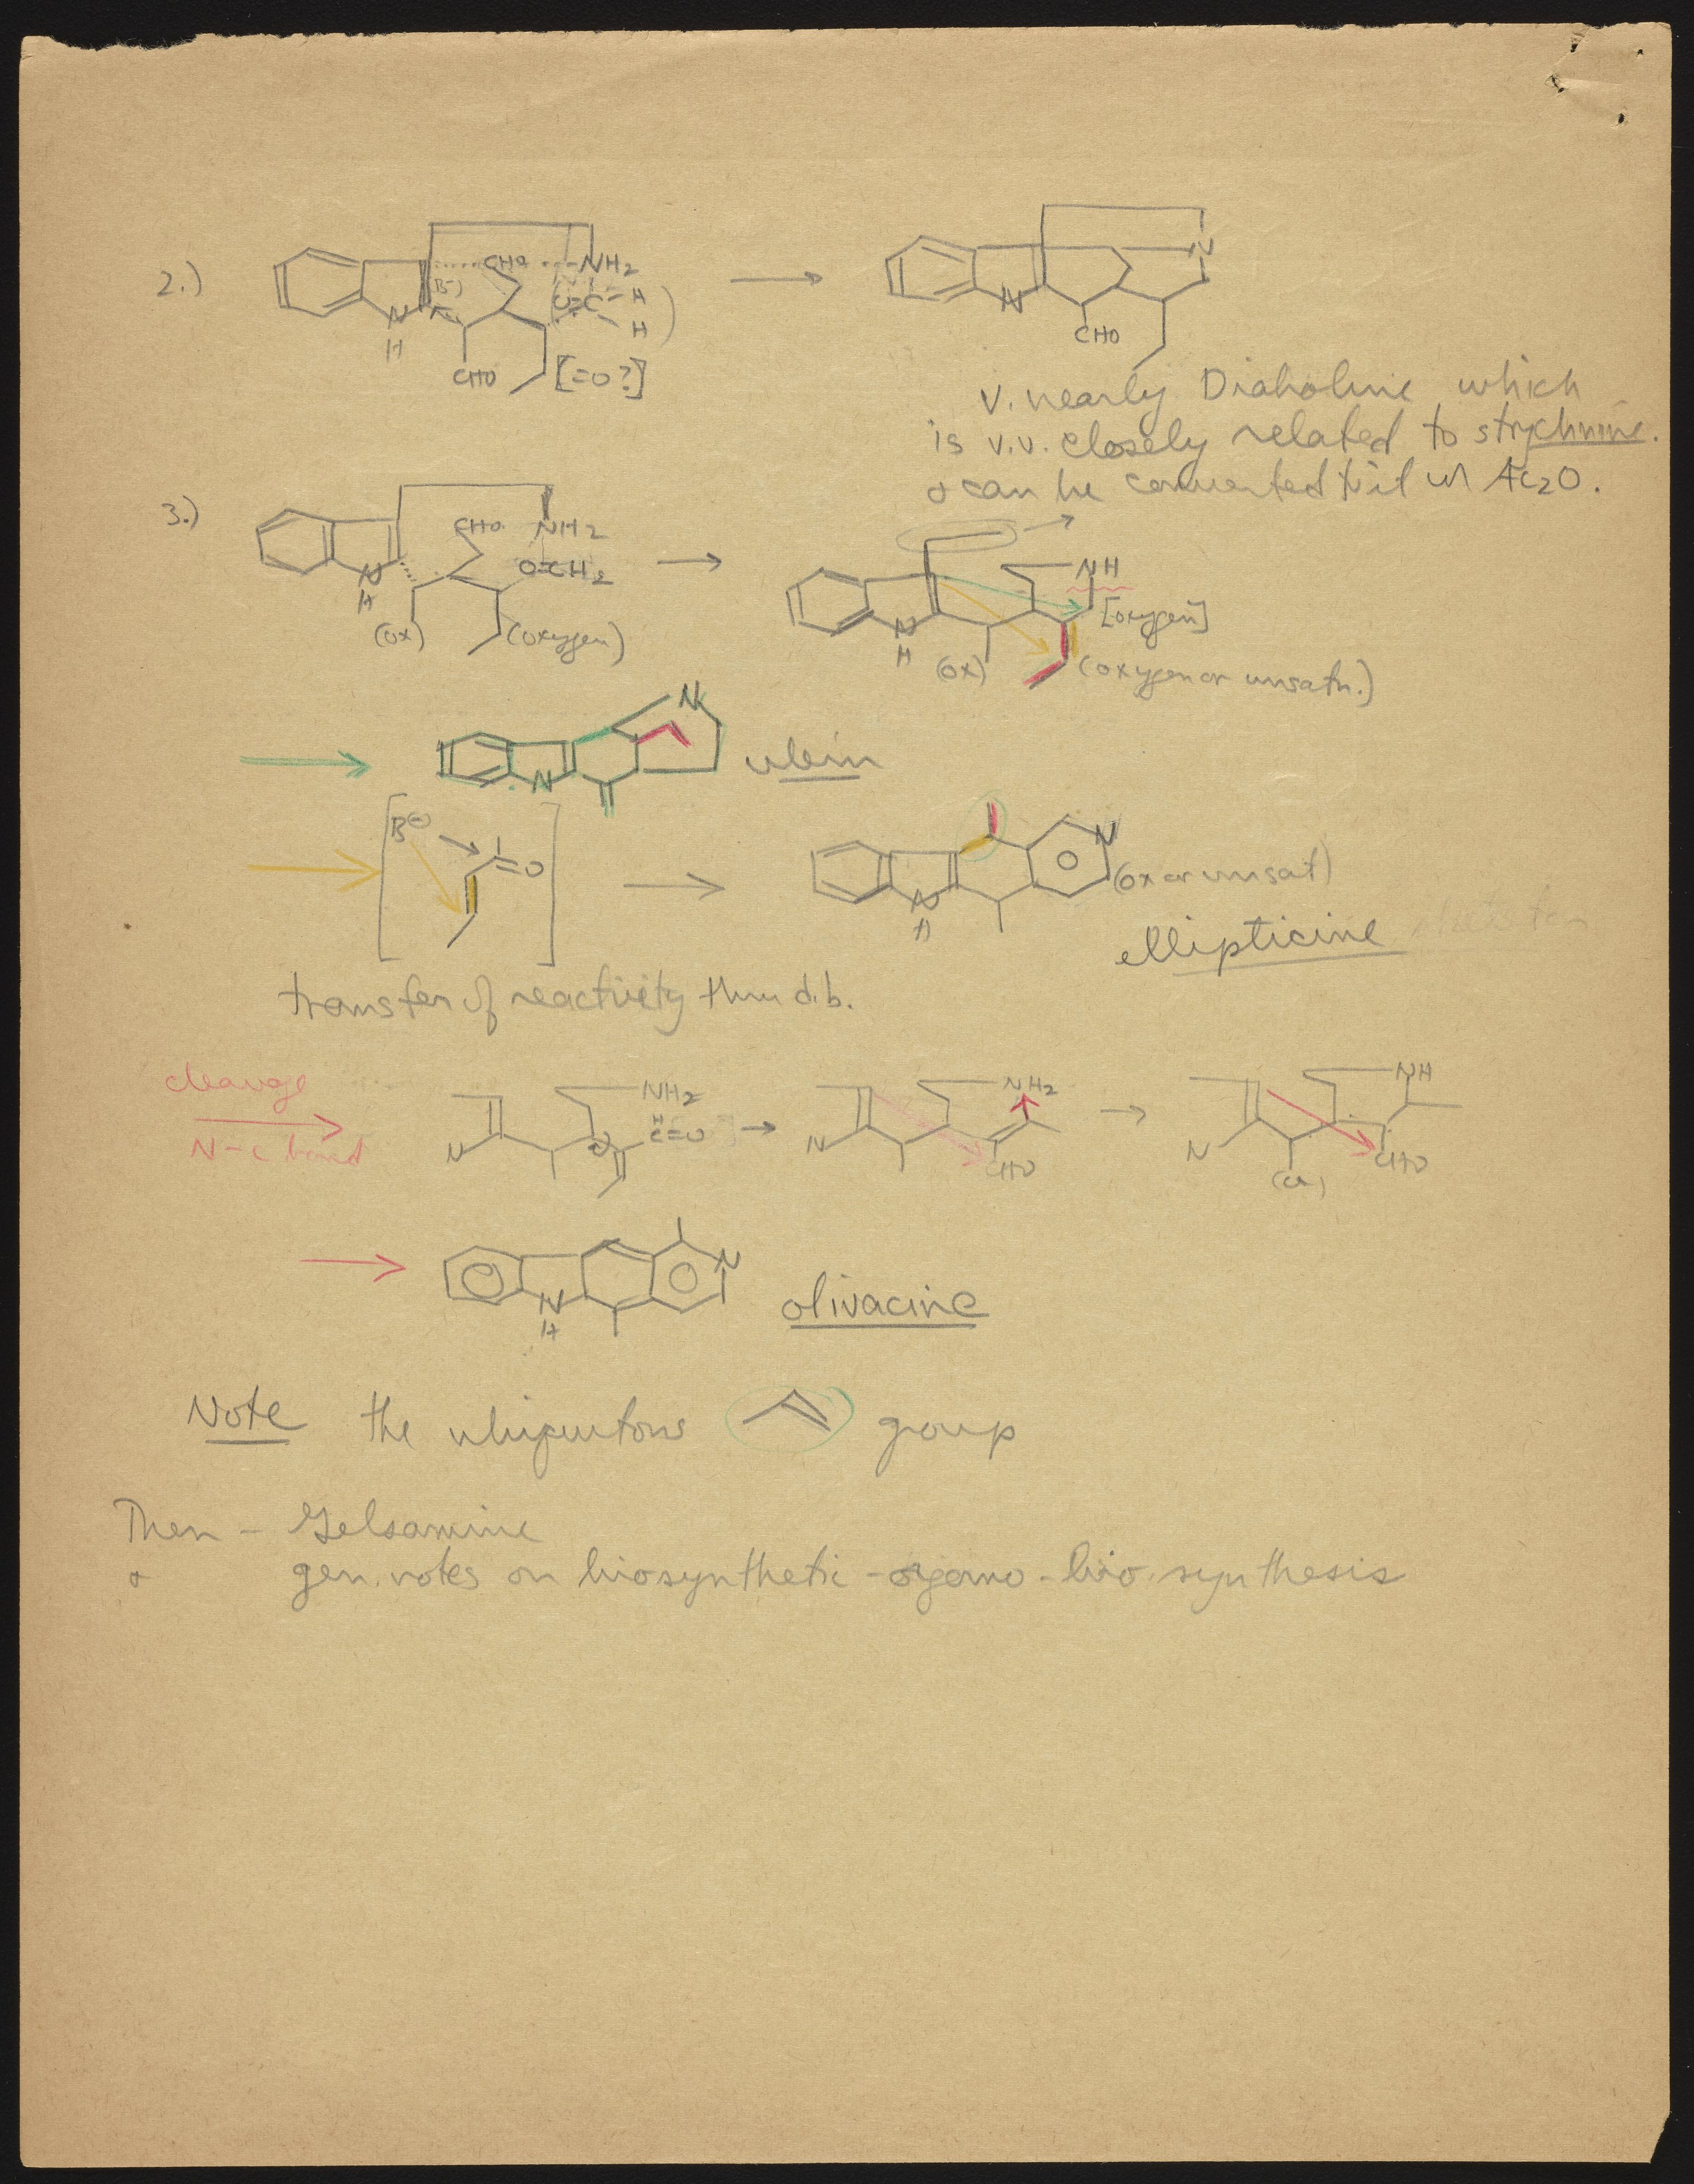 2.)
CHO NH2
(B-)
O=C H
H
N
H
CHO
[=O?]
N
N
CHO
v. nearly Diaboline which
is v.v. closely related to strychnine.
& can be converted to it w/ Ac2O.
3.)
CHO NH2
O=CH2
N
H
(ox)
(oxygen)
NH
[oxygen]
N
H
(ox)
(oxygen or unsatn.)
N
N
ulein
B⊖
=O
N
N
H
(ox or unsat)
ellipticine
transfer of reactivity thru d.b.
cleavage
N-C bond
NH2
H
C=O
N
NH2
N
CHO
NH
N
CHO
(ox)
N
N
H
olivacine
Note the ubiquitous group
Then - Gelsamine
& gen. notes on biosynthetic - organo - bio. synthesis